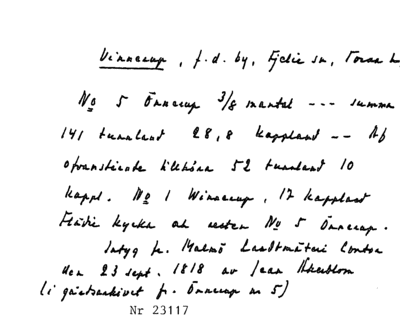 Vinnerup, f.d. by, Fjelie sn, Torna h
No 5 Önnerup 3/8 mantal --- summa
141 tunnland 28,8 kappland -- Af
ofvanstående tillhöra 52 tunnland 10
kappl. No 1 Winnerup, 17 kappland
Flädie kyrka och resten No 5 Önnerup.
Intyg fr. Malmö Landtmäteri Contor
den 23 sept. 1818 av Jean Åkerblom
(i gårdsarkivet fr. Önnerup nr 5)
Nr 23117